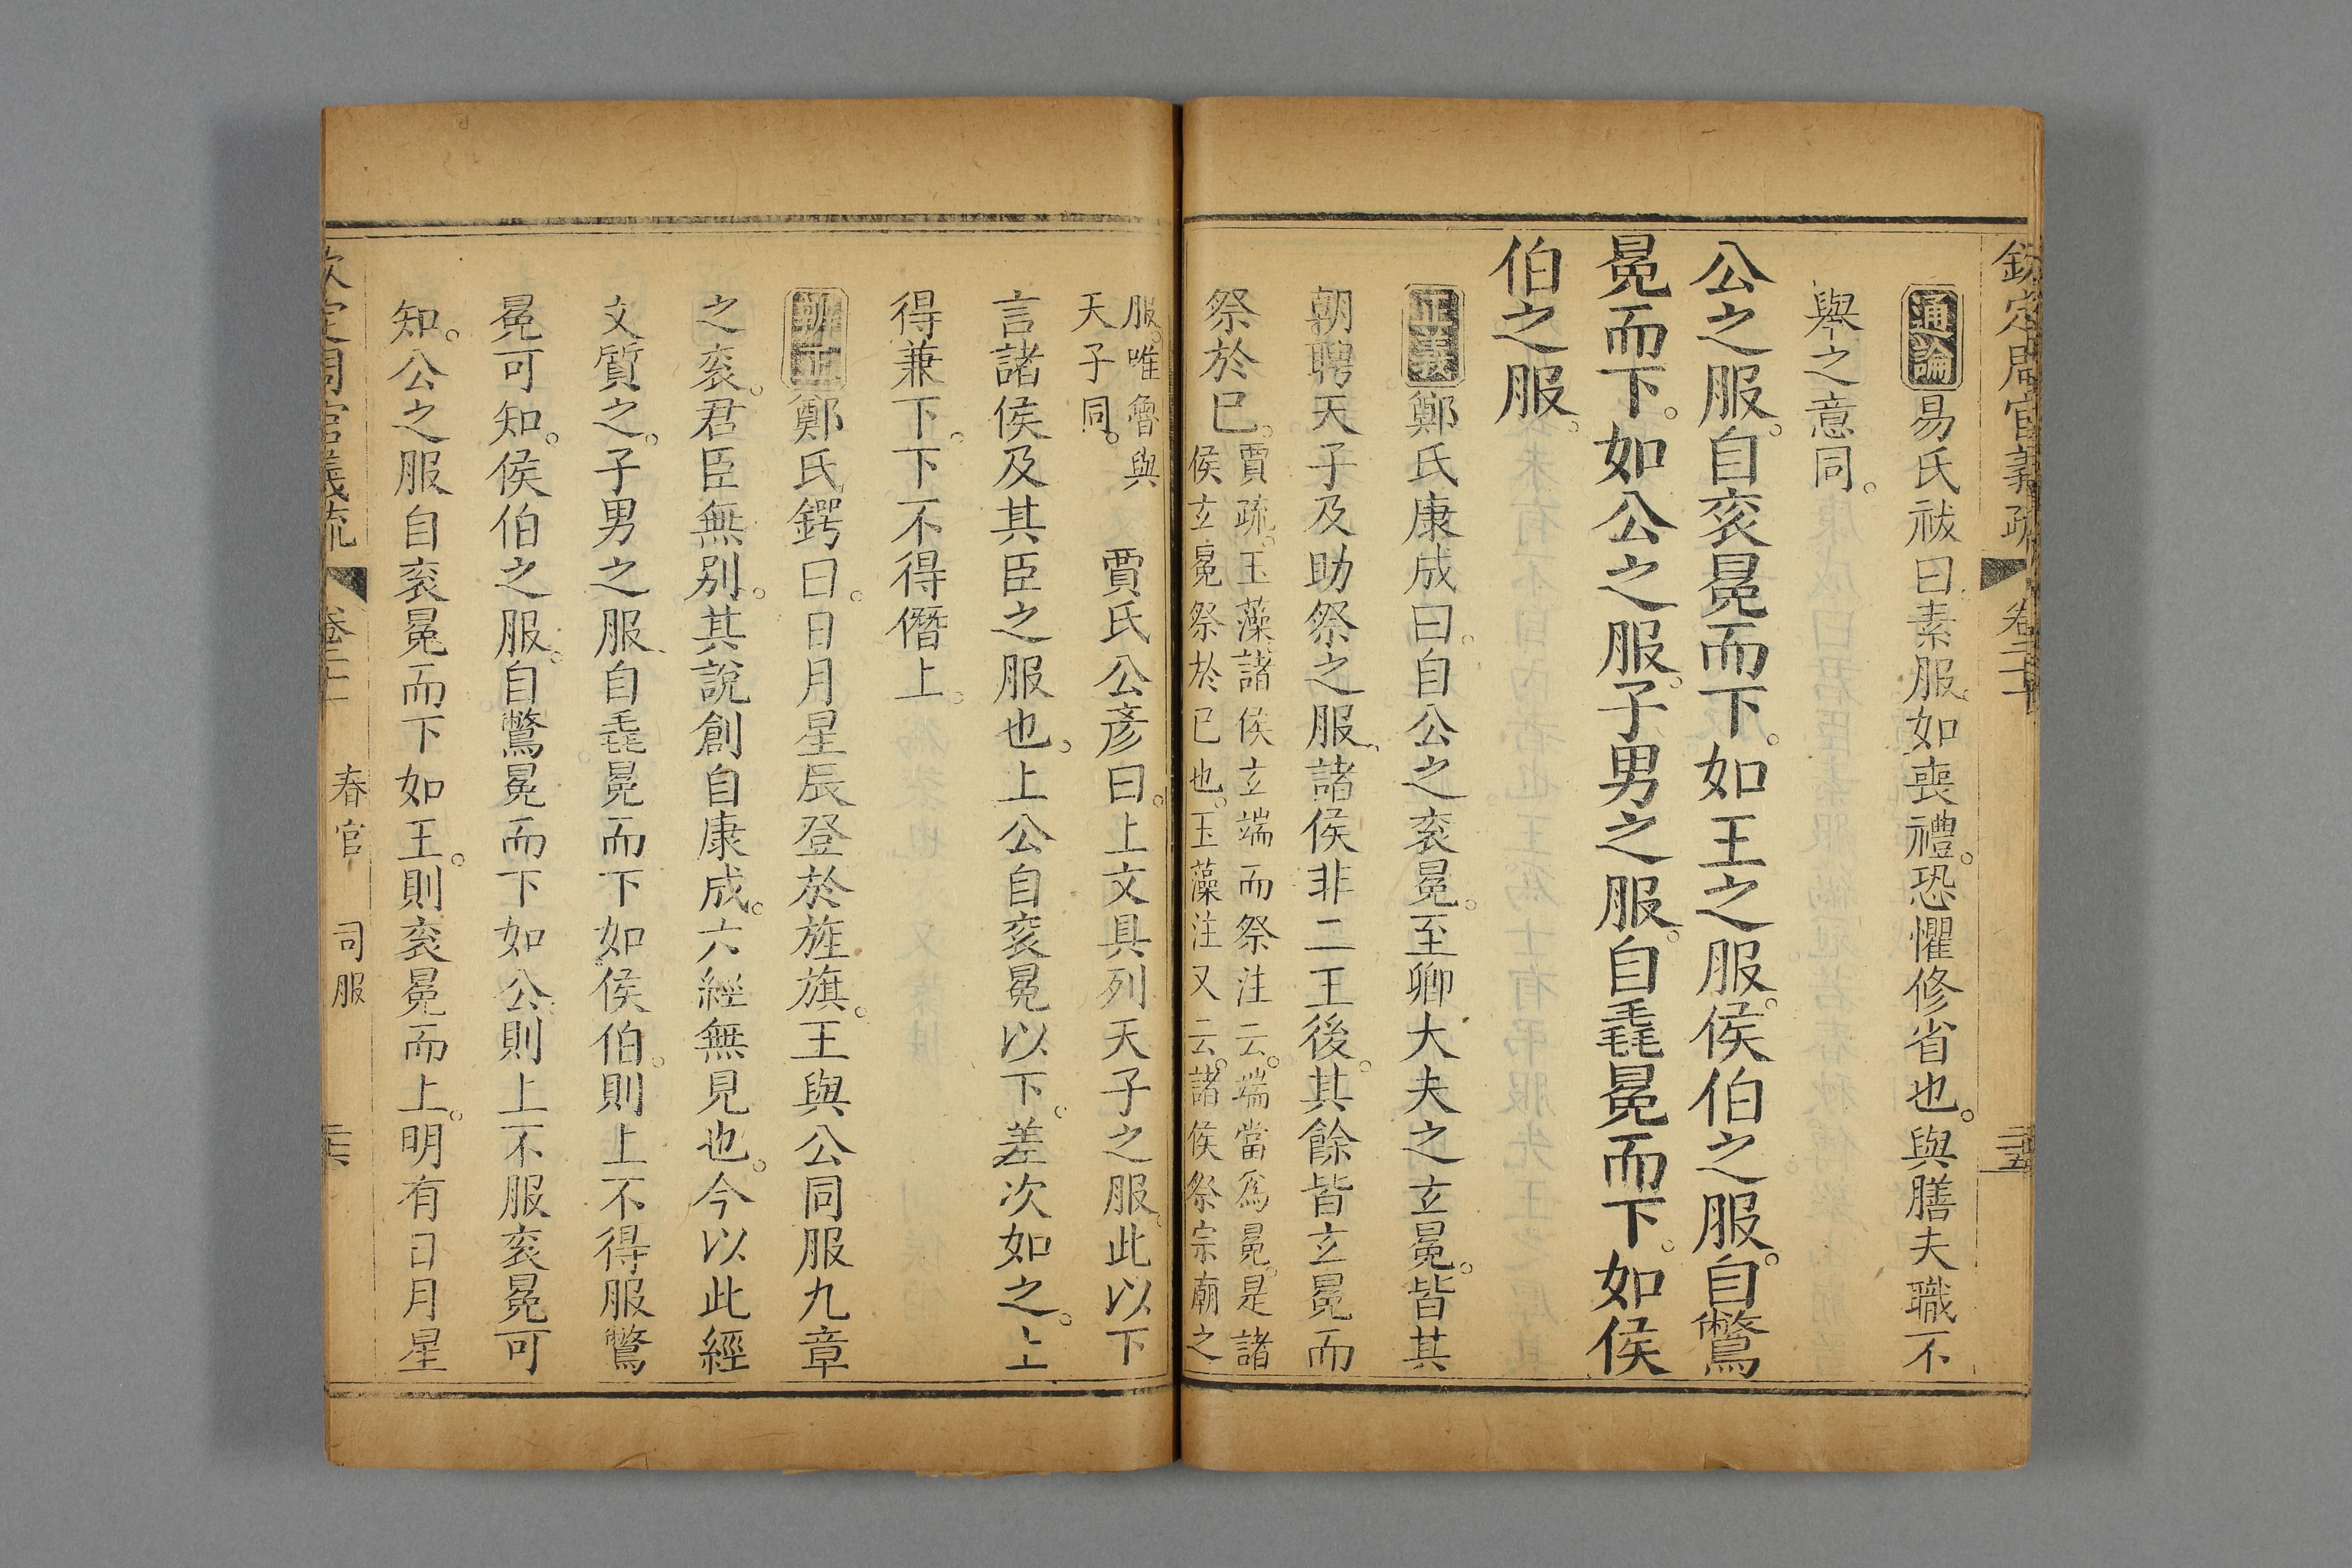 欽定周官義疏 卷二十一 三五
通論易氏祓曰素服如喪禮恐懼修省也與膳夫職不
舉之意同
公之服自袞冕而下如王之服侯伯之服自鷩
冕而下如公之服子男之服自毳冕而下如侯
伯之服
正義鄭氏康成曰自公之袞冕至卿大夫之玄冕皆其
朝聘天子及助祭之服諸侯非二王後其餘皆玄冕而
祭於巳
賈疏玉藻諸侯玄端而祭注云端當爲冕是諸
侯玄冕祭於巳也玉藻注又云諸侯祭宗廟之
服唯魯與
天子同
賈氏公彦曰上文具列天子之服此以下
言諸侯及其臣之服也上公自袞冕以下差次如之上
得兼下下不得僭上
辨正鄭氏鍔曰日月星辰登於旌旗王與公同服九章
之袞君臣無別其說創自康成六經無見也今以此經
文質之子男之服自毳冕而下如侯伯則上不得服鷩
冕可知侯伯之服自鷩冕而下如公則上不服袞冕可
知公之服自袞冕而下如王則袞冕而上明有日月星
欽定周官義疏 卷二十一 春官 司服 三六